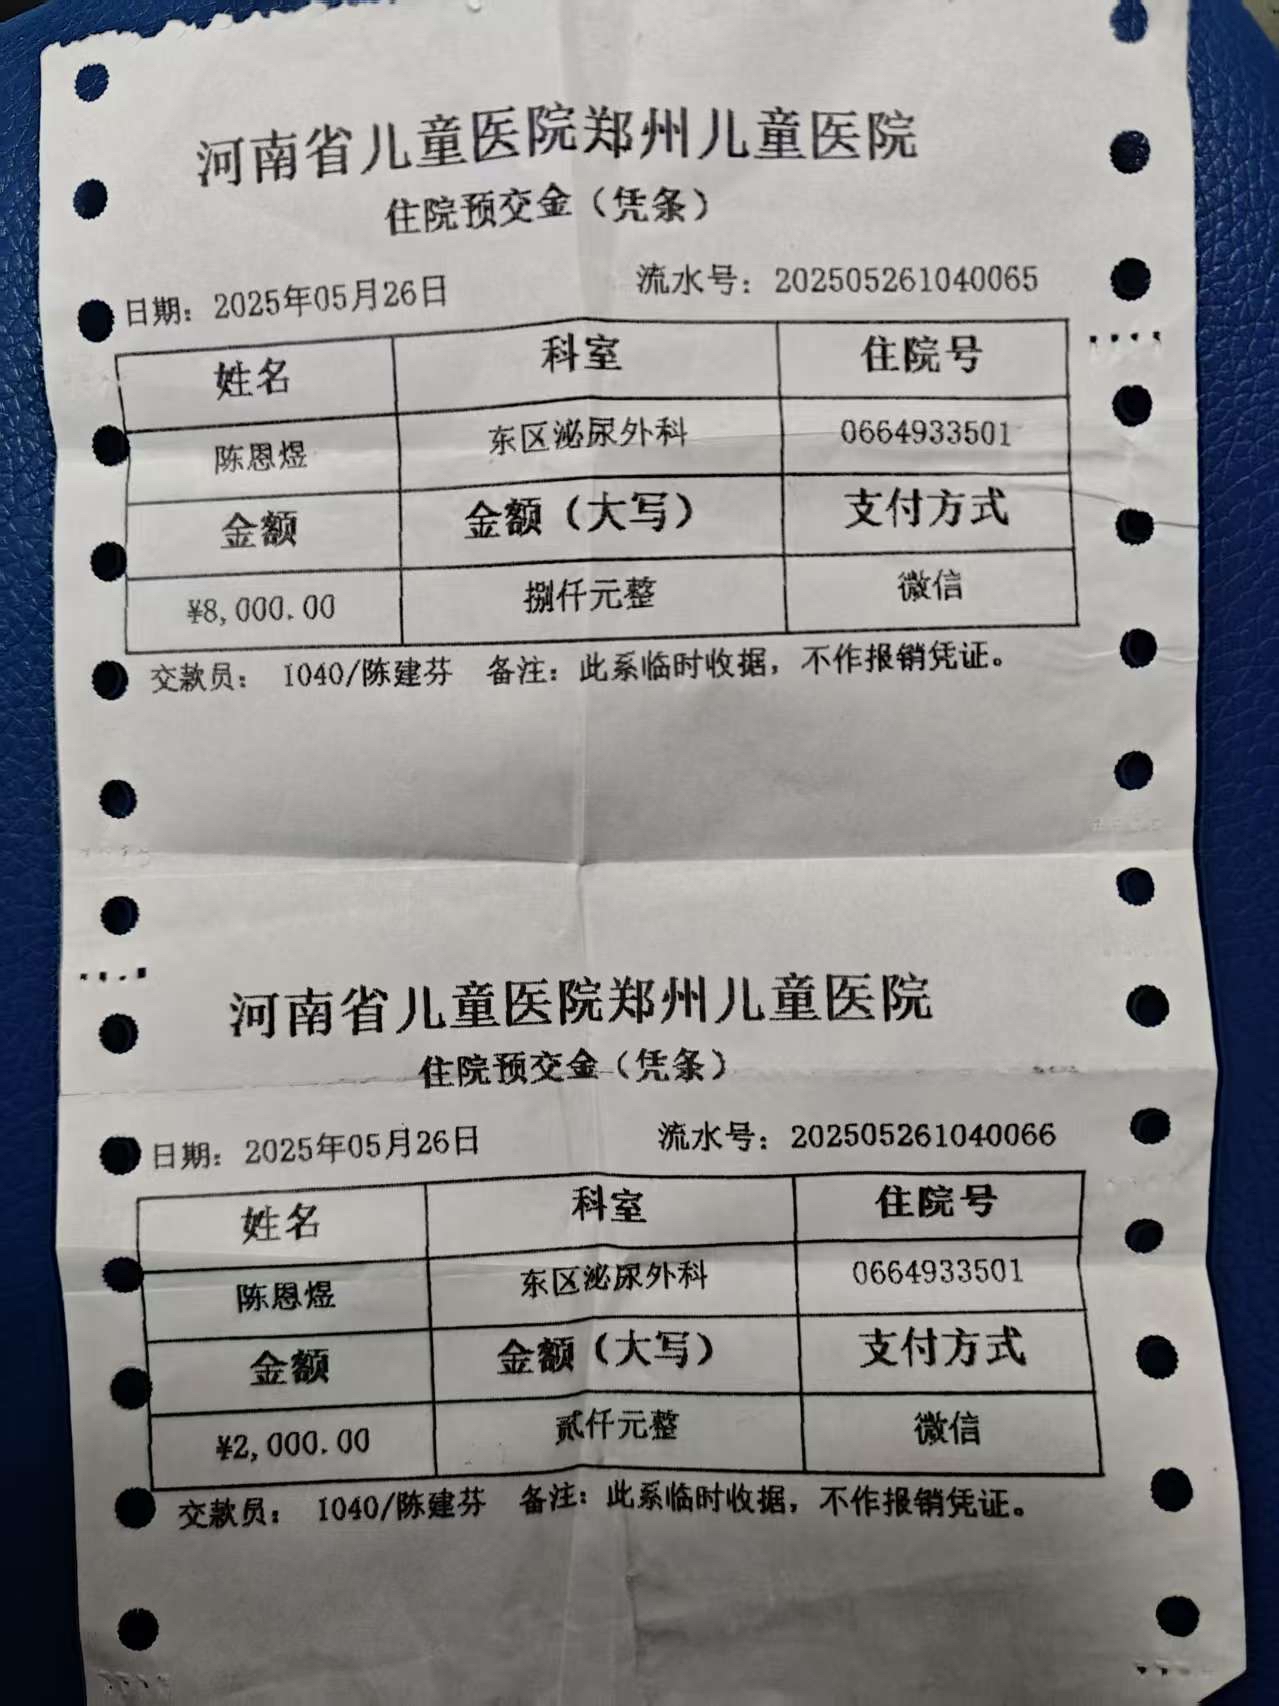 河南省儿童医院郑州儿童医院
住院预交金（凭条）
日期：2025年05月26日 流水号：202505261040065
姓名 科室 住院号
陈恩煜 东区泌尿外科 0664933501
金额 金额（大写） 支付方式
¥8,000.00 捌仟元整 微信
交款员： I040/陈建芬 备注：此系临时收据，不作报销凭证。
河南省儿童医院郑州儿童医院
住院预交金（凭条）
日期：2025年05月26日 流水号：202505261040066
姓名 科室 住院号
陈恩煜 东区泌尿外科 0664933501
金额 金额（大写） 支付方式
¥2,000.00 贰仟元整 微信
交款员： I040/陈建芬 备注：此系临时收据，不作报销凭证。